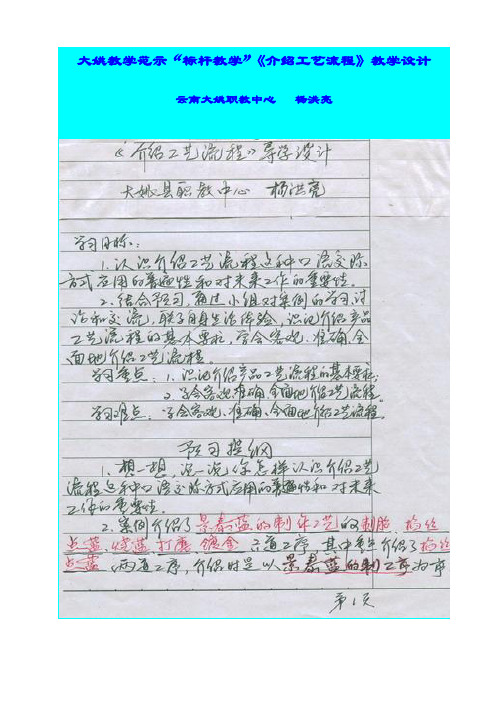 大姚教学范示“标杆教学”《介绍工艺流程》教学设计
云南大姚职教中心 杨洪亮
《介绍工艺流程》导学设计
大姚县职教中心 杨洪亮
学习目标：
1.认识介绍工艺流程这种口语交际
方式应用的普遍性和对未来工作的重要性。
2.结合预习，通过小组对案例的学习、讨
论和交流，联系自身生活体验，识记介绍产品
工艺流程的基本要求，学会客观、准确、全
面地介绍工艺流程。
学习重点：1.识记介绍产品工艺流程的基本要求；
2.学会客观、准确、全面地介绍工艺流程。
学习难点：学会客观、准确、全面地介绍工艺流程。
预习提纲
1.想一想，说一说，你怎样认识介绍工艺
流程这种口语交际方式应用的普遍性和对未来
工作的重要性。
2.案例介绍了景泰蓝的制作工艺的制胎、掐丝
点蓝、烧蓝、打磨、镀金六道工序，其中重点介绍了掐丝
点蓝、两道工序，介绍时是以景泰蓝的制工序为序
第1页